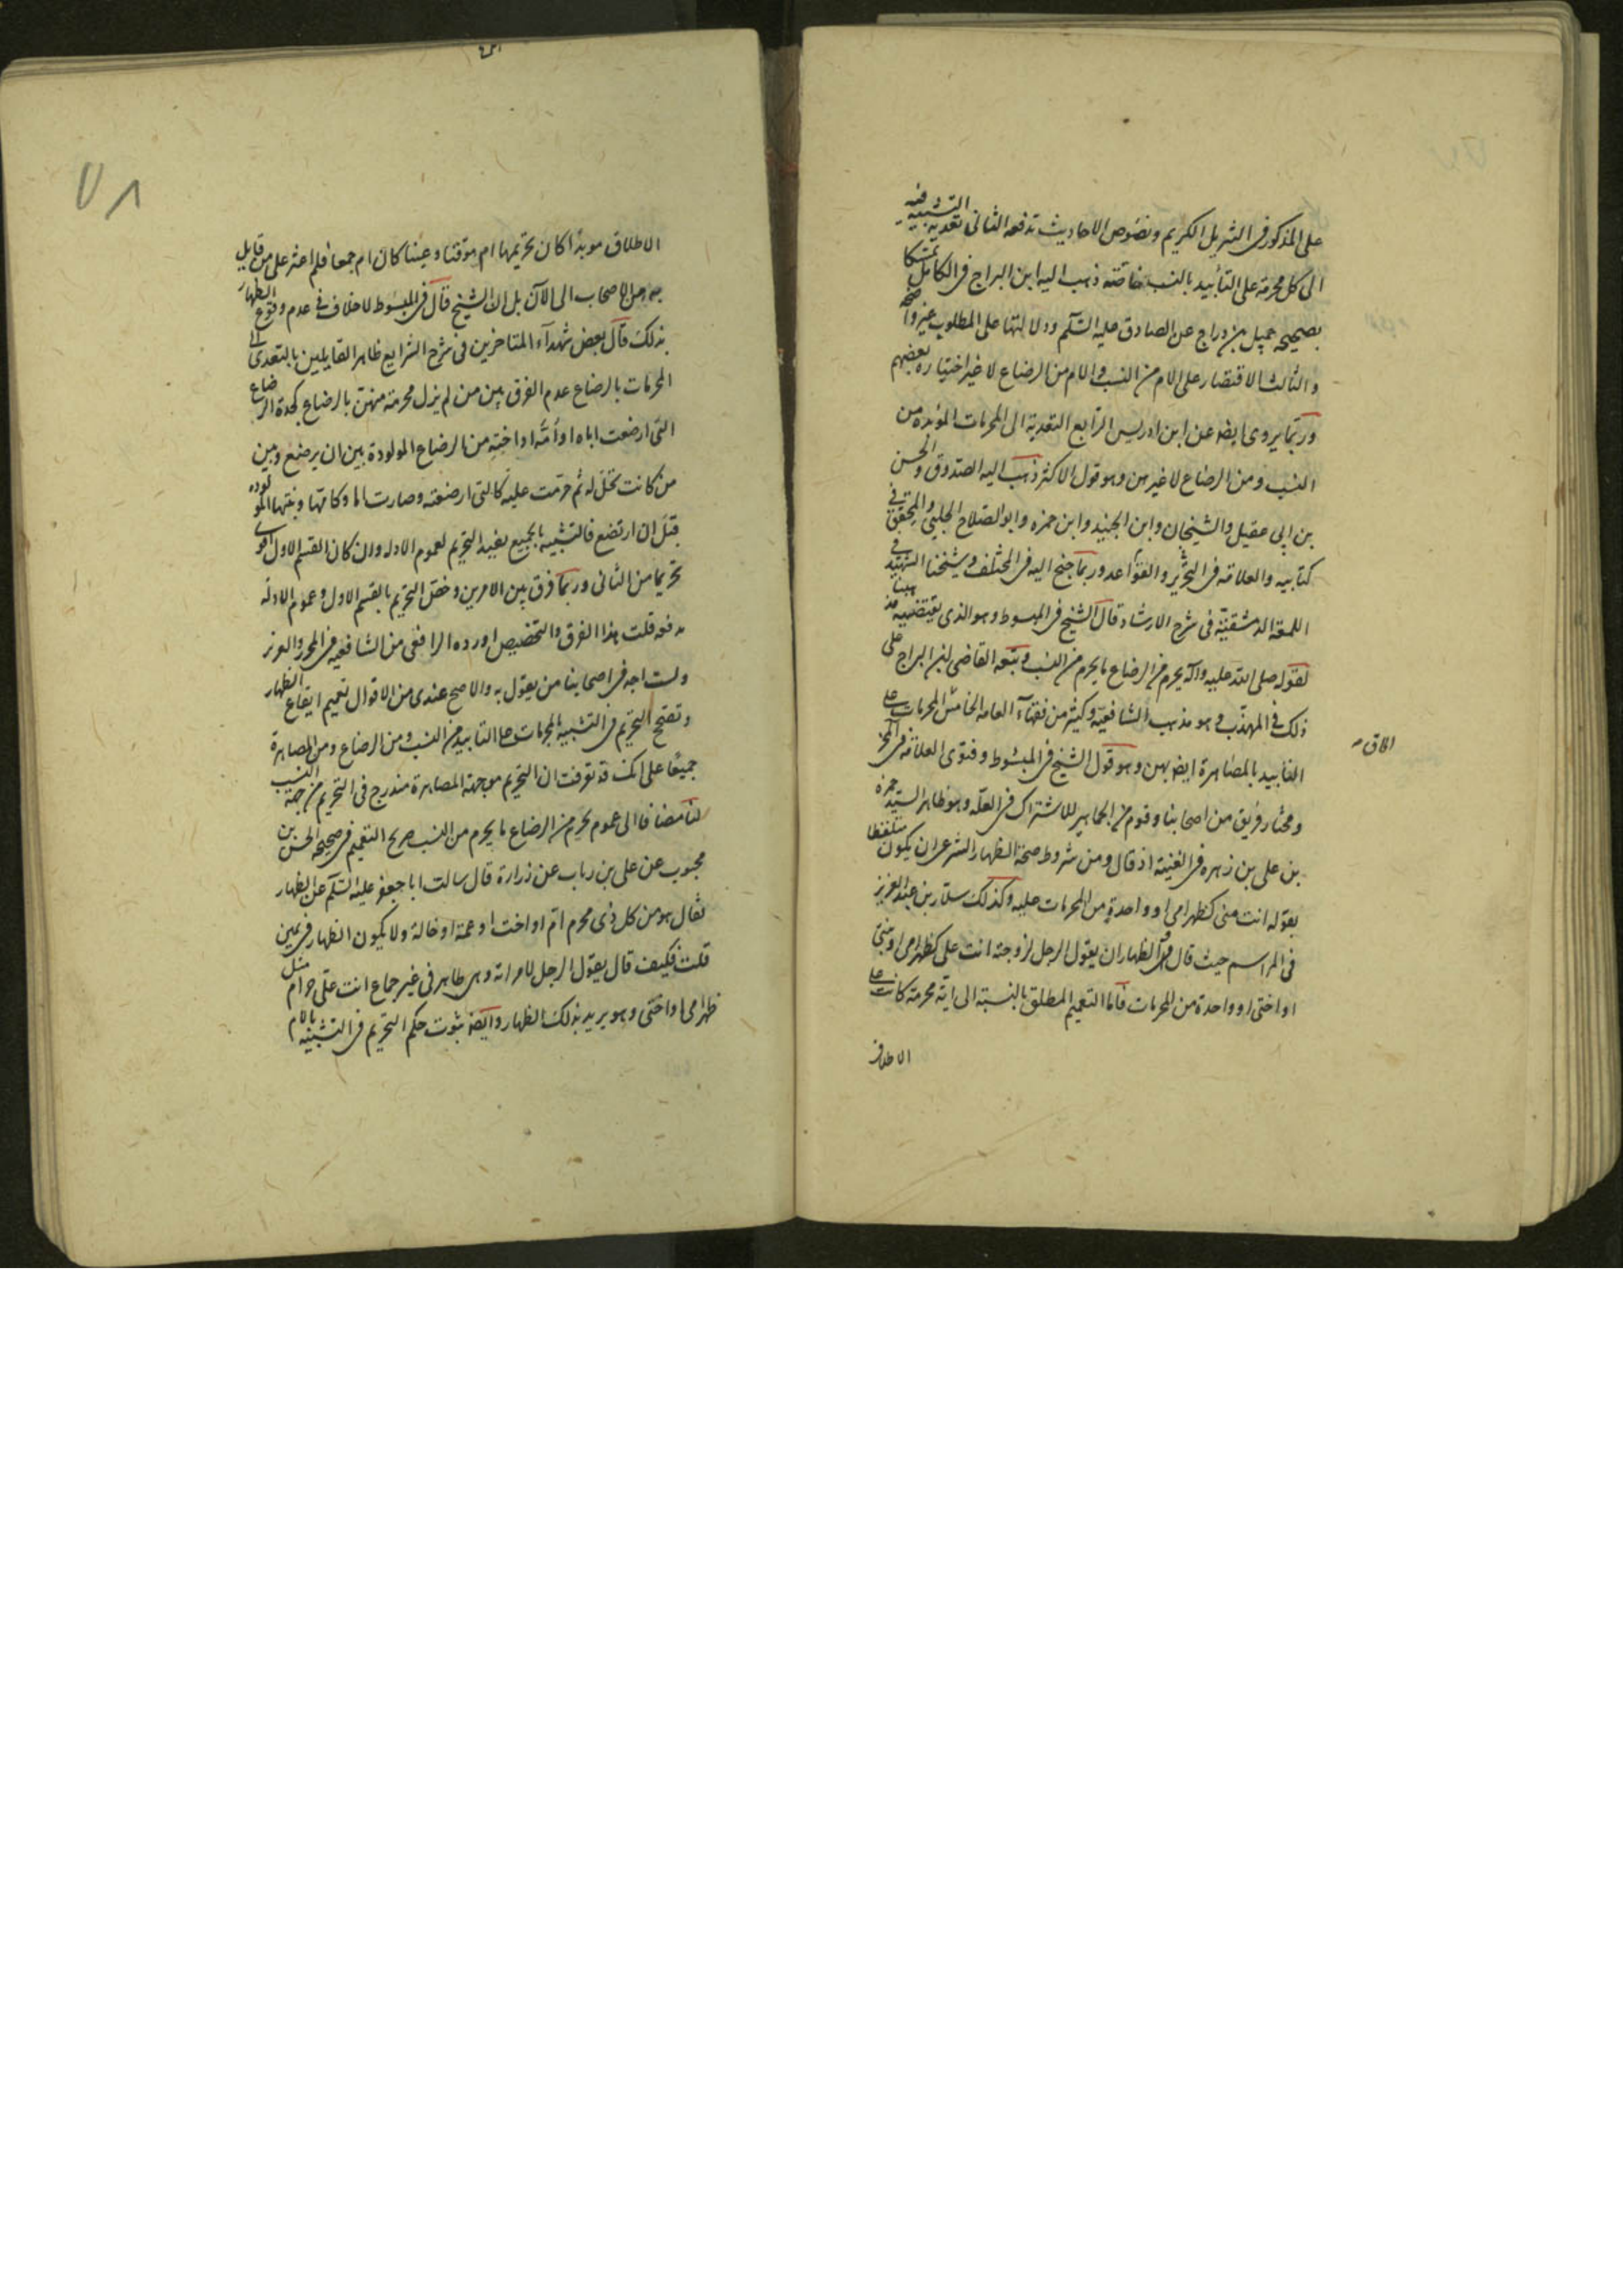 على المذكور فى التنزيل الكريم ونصوص الاحاديث تدفعه الثانى تعدية التشبيه فيه
الى كل محرمة على التأبيد بالنسب خاصة ذهب اليه ابن البراج فى الكامل تمسكا
بصحيحه جميل بن دراج عن الصادق عليه السلم ودلالتها على المطلوب غير واضحه
والثالث الاقتصار على الام من النسب والام من الرضاع لا غير اختياره بعضهم
وربما يروى ايضه عن ابن ادريس الرابع التعدية الى المحرمات المؤبده من
النسب ومن الرضاع لا غيرهن وهو قول الاكثر ذهب اليه الصدوق والحسن
بن ابى عقيل والشيخان وابن الجنيد وابن حمزه وابو الصلاح الحلبى والمحقق فى
كتابيه والعلامه فى التحرير والقواعد وربما جنح اليه فى المختلف وشيخنا الشهيد فى
اللمعة الدمشقيه فى شرح الارشاد قال الشيخ فى المبسوط وهو الذى يقتضيه مذهبنا
لقوله صلى الله عليه وآله يحرم من الرضاع ما يحرم من النسب وتبعه القاضى ابن البراج على
ذلك فى المهذب وهو مذهب الشافعيه وكثير من فقهآء العامه الخامس المحرمات على
التأبيد بالمصاهرة ايضه بهن وهو قول الشيخ فى المبسوط وفتوى العلامه فى
ومختار فريق من اصحابنا وقوم من الجماهير للاشتراك فى العله وهو ظاهر السيد حمزه
بن على بن زهره فى الغنية اذ قال ومن شروط صحة الظهار الشرعى ان يكون متلفظا
بقوله انت منى كظهر امى او واحدة من المحرمات عليه وكذلك سلار بن عبد العزيز
فى المراسم حيث قال الظهار ان يقول الرجل لزوجته انت على كظهر امى او بنتى
او اختى او واحدة من المحرمات فاما التعميم المطلق بالنسبة الى اية محرمة كانت على
الاطلاق
الاطلاق موبدا كان تحريمها ام موقتا وعينا كان ام جمعا فلم اعثر على من قايل
به من الاصحاب الى الآن بل ان الشيخ قال فى المبسوط لا خلاف فى عدم وقوع الظهار
بذلك قال بعض شهدآء المتاخرين فى شرح الشرايع ظاهر القايلين بالتعدى الى
المحرمات بالرضاع عدم الفرق بين من لم يزل محرمة منهن بالرضاع كجدة الرضاع
التى ارضعت اباه او امه او اخته من الرضاع المولودة بين ان يرضع وبين
من كانت تحل له ثم حرمت عليه كالتى ارضعته وصارت اما وكامها وبنتها المولوده
قبل ان ارتضع فالتشبيه بالجميع يفيد التحريم لعموم الادله وان كان القسم الاول اقوى
تحريما من الثانى وربما فرق بين الامرين وخص التحريم بالقسم الاول وعموم الادلة
مدفعه قلت هذا الفرق والتخصيص اورده الرافعى من الشافعيه فى المحرر والعزيز
ولست اجد فى اصحابنا من يقول به والاصح عندى من الاقوال تعميم ايقاع الظهار
وتصح التحريم فى التشبيه بالمحرمات على التابيد من النسب ومن الرضاع ومن المصاهرة
جميعا على انك قد تعرفت ان التحريم بوجهة المصاهرة مندرج فى التحريم من جهة النسب
لنا مضافا الى عموم يحرم من الرضاع ما يحرم من النسب صريح التعميم فى صحيحه الحسن بن
محبوب عن على بن رياب عن زرارة قال سالت ابا جعفر عليه السلم عن الظهار
فقال هو من كل ذى محرم ام او اخت او عمة او خالة ولا يكون الظهار فى يمين
قلت فكيف قال يقول الرجل لامراته وهى طاهر فى غير جماع انت على حرام مثل
ظهر امى او اختى وهو يريد بذلك الظهار وايضه ثبوت حكم التحريم فى التشبيه بالام